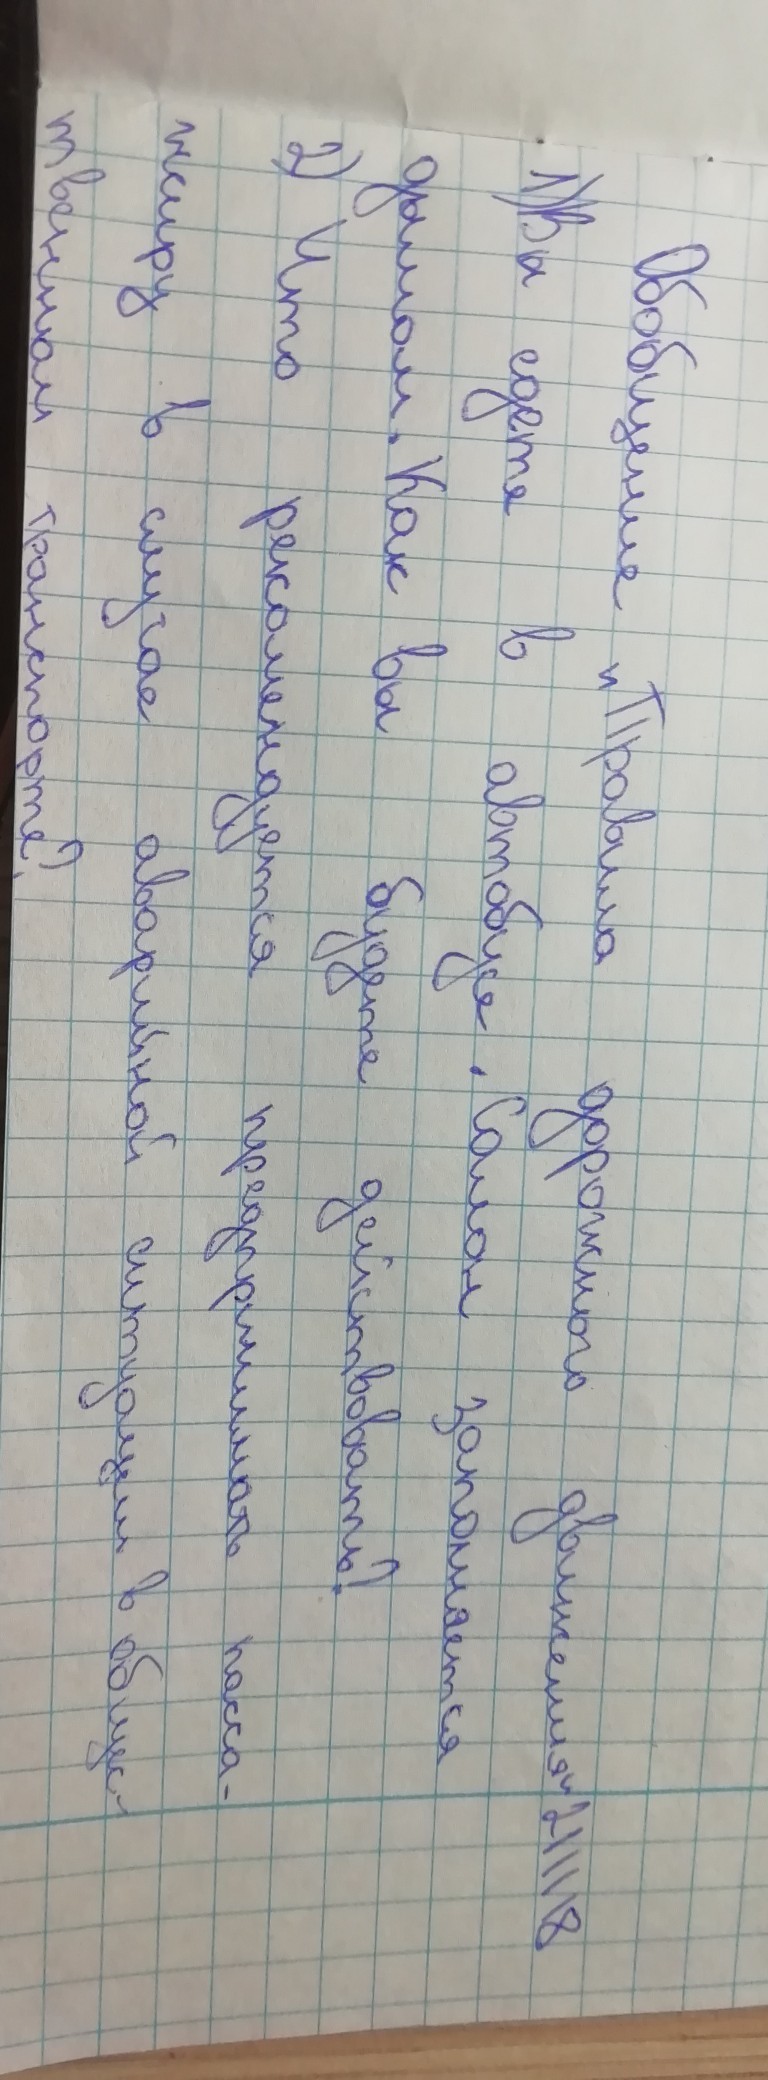 Обобщение "Правила дорожного движения"
1) Вы едете в автобусе. Салон заполняется
дымом. Как вы будете действовать?
2) Что рекомендуется предпринимать пасса-
жиру в случае аварийной ситуации в общес-
твенном транспорте?